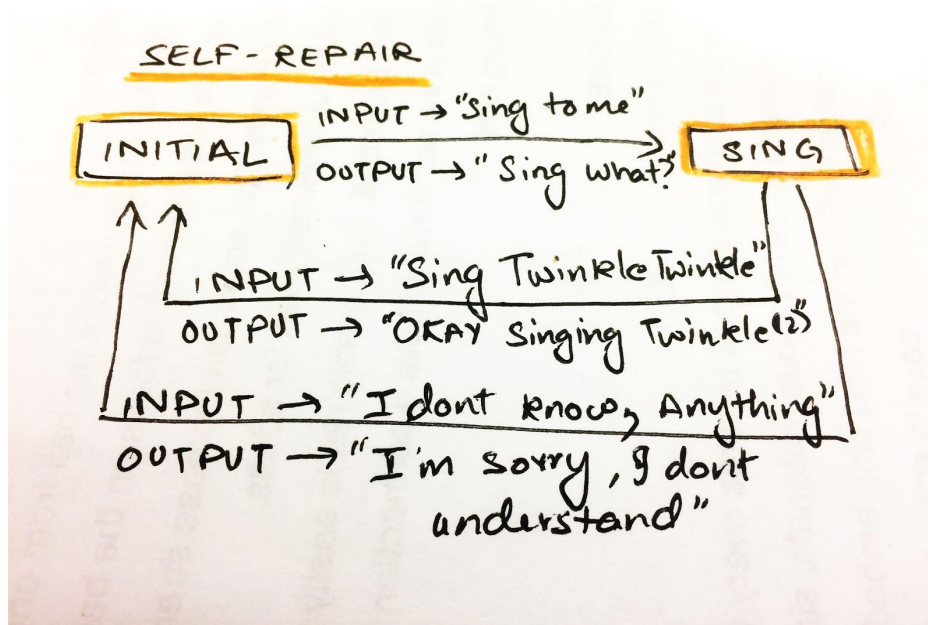 SELF-REPAIR
INPUT → "Sing to me"
INITIAL
SING
OUTPUT → "Sing what?"
INPUT → "Sing Twinkle Twinkle"
OUTPUT → "OKAY Singing Twinkle(2)"
INPUT → "I dont know, Anything"
OUTPUT → "I'm sorry, I dont
understand"